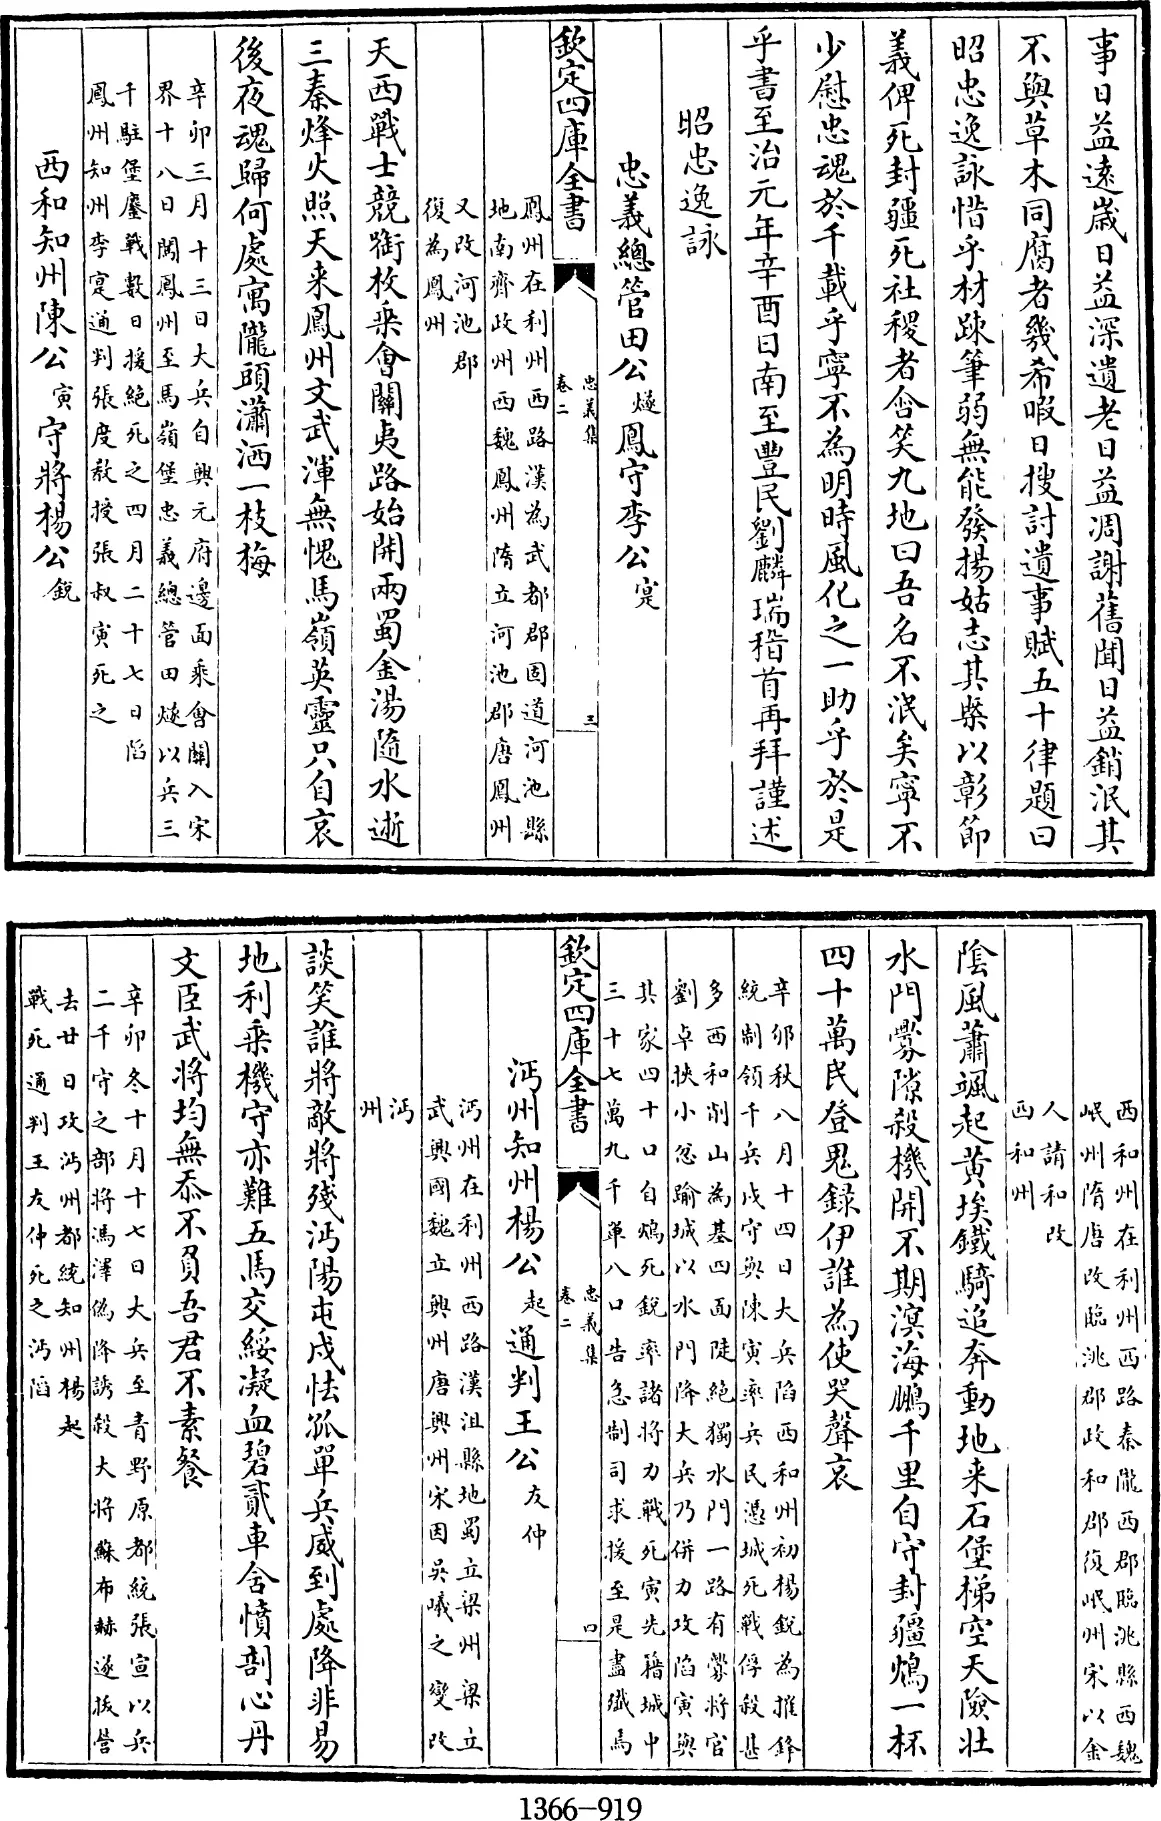 事日益遠歲日益深遺老日益凋謝舊聞日益銷泯其
不與草木同腐者幾希暇日搜討遺事賦五十律題曰
昭忠逸詠惜乎材踈筆弱無能發揚姑志其槩以彰節
義俾死封疆死社稷者含笑九地曰吾名不泯矣寧不
少慰忠魂於千載乎寧不為明時風化之一助乎於是
乎書至治元年辛酉日南至豐民劉麟瑞稽首再拜謹述
昭忠逸詠
忠義總管田公燧鳳守李公寔
欽定四庫全書
忠義集
卷二
三
鳳州在利州西路漢為武都郡固道河池縣
地南齊政州西魏鳳州隋立河池郡唐鳳州
又改河池郡
復為鳳州
天西戰士競銜枚乘會關夷路始開兩蜀金湯隨水逝
三秦烽火照天来鳳州文武渾無愧馬嶺英靈只自哀
後夜魂歸何處寓隴頭瀟洒一枝梅
辛卯三月十三日大兵自興元府邊面乘會關入宋
界十八日闖鳳州至馬嶺堡忠義總管田燧以兵三
千駐堡鏖戰數日援絕死之四月二十七日陷
鳳州知州李寔通判張度教授張叔寅死之
西和知州陳公寅守將楊公銳
西和州在利州西路秦隴西郡臨洮縣西魏
岷州隋唐改臨洮郡政和郡復岷州宋以金
人請和改
西和州
陰風蕭颯起黄埃鐵騎追奔動地来石堡梯空天險壯
水門釁隙殺機開不期溟海鵬千里自守封疆鴆一杯
四十萬民登鬼錄伊誰為使哭聲哀
辛卯秋八月十四日大兵陷西和州初楊銳為摧鋒
統制領千兵戍守與陳寅率兵民憑城死戰俘殺甚
多西和削山為基四面陡絕獨水門一路有釁將官
劉卓挾小忿踰城以水門降大兵乃併力攻陷寅與
其家四十口自鴆死銳率諸將力戰死寅先籍城中
三十七萬九千單八口告急制司求援至是盡殱焉
欽定四庫全書
忠義集
卷二
四
沔州知州楊公起通判王公友仲
沔州在利州西路漢沮縣地蜀立梁州梁立
武興國魏立興州唐興州宋因吳曦之變改
沔
州
談笑誰將敵將殘沔陽屯戍怯孤單兵威到處降非易
地利乘機守亦難五馬交綏凝血碧貳車舍憤剖心丹
文臣武將均無忝不負吾君不素餐
辛卯冬十月十七日大兵至青野原都統張宣以兵
二千守之部將馮澤偽降誘殺大將蘇布赫遂拔營
去廿日攻沔州都統知州楊起
戰死通判王友仲死之沔陷
1366-919